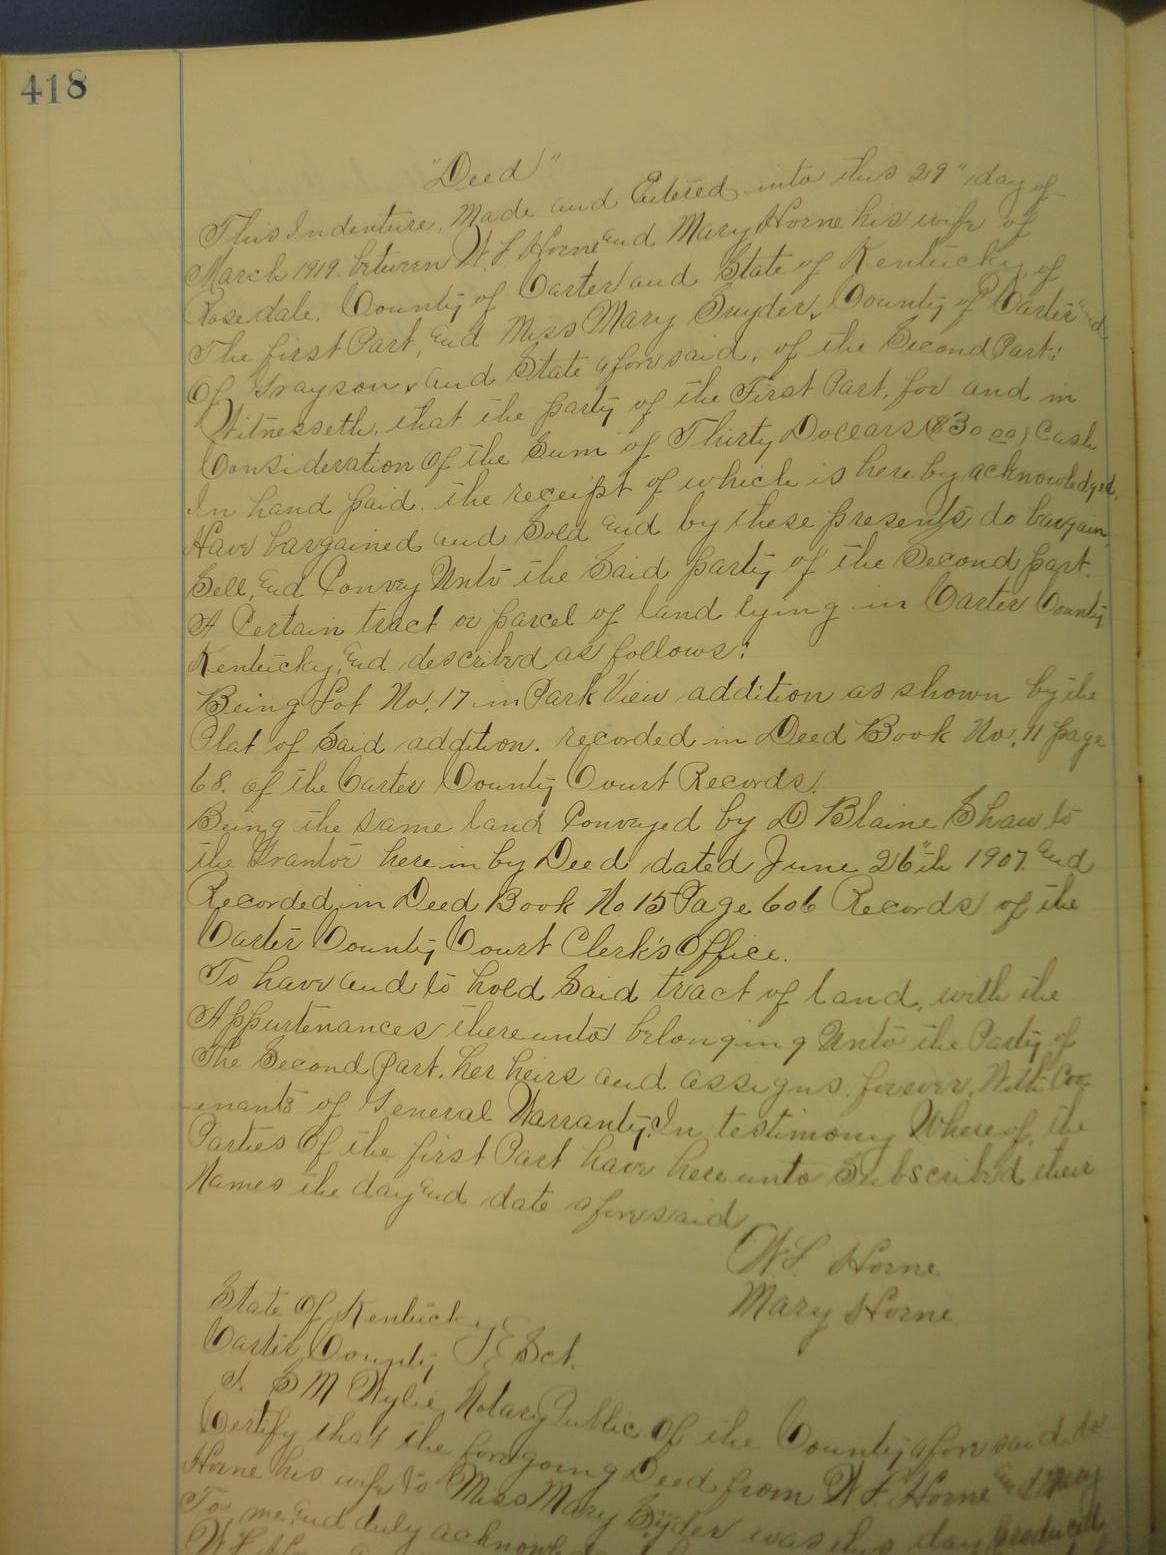 418
"Deed"
This Indenture, Made and Entered into this 29" day of
March 1919. between W. L Horne and Mary Horne his wife of
Rosedale, County of Carter and State of Kentucky, of
The first Part, and Miss Mary Snyder, County of Carter and
Of Grayson, and State aforesaid, of the Second Part:
Witnesseth, that the party of the First Part, for and in
Consideration Of the Sum of Thirty Dollars ($30 00) Cash
In hand paid. the receipt of which is here by acknowledged,
Have bargained and Sold and by these presents do bargain,
Sell, and Convey Unto the Said party of the Second part.
A Certain tract or parcel of land lying in Carter County
Kentucky, and described as follows:
Being Lot No. 17 in Park View addition as shown by the
Plat of Said addition. recorded in Deed Book No. 11 page
68. of the Carter County Court Records.
Being the same land Conveyed by D Blaine Shaw to
the Grantor here in by Deed dated June 26"th 1907. and
Recorded in Deed Book No 15 Page 606 Records of the
Carter County Court Clerk's Office.
To have and to hold Said tract of land, with the
Appurtenances there unto belonging Unto the Party of
The Second Part. her heirs and assigns forever, With Cov-
enants of General Warranty. In testimony Where of, the
Parties Of the first Part have here unto Subscribed their
Names the day and date aforesaid
W. L. Horne
Mary Horne
State Of Kentucky
Carter County Sct.
I. S M Wylie, Notary Public Of the County aforesaid do
Certify that the foregoing Deed from W L Horne and Mary
Horne his wife to Miss Mary Snyder was this day produced
To me and duly
W L